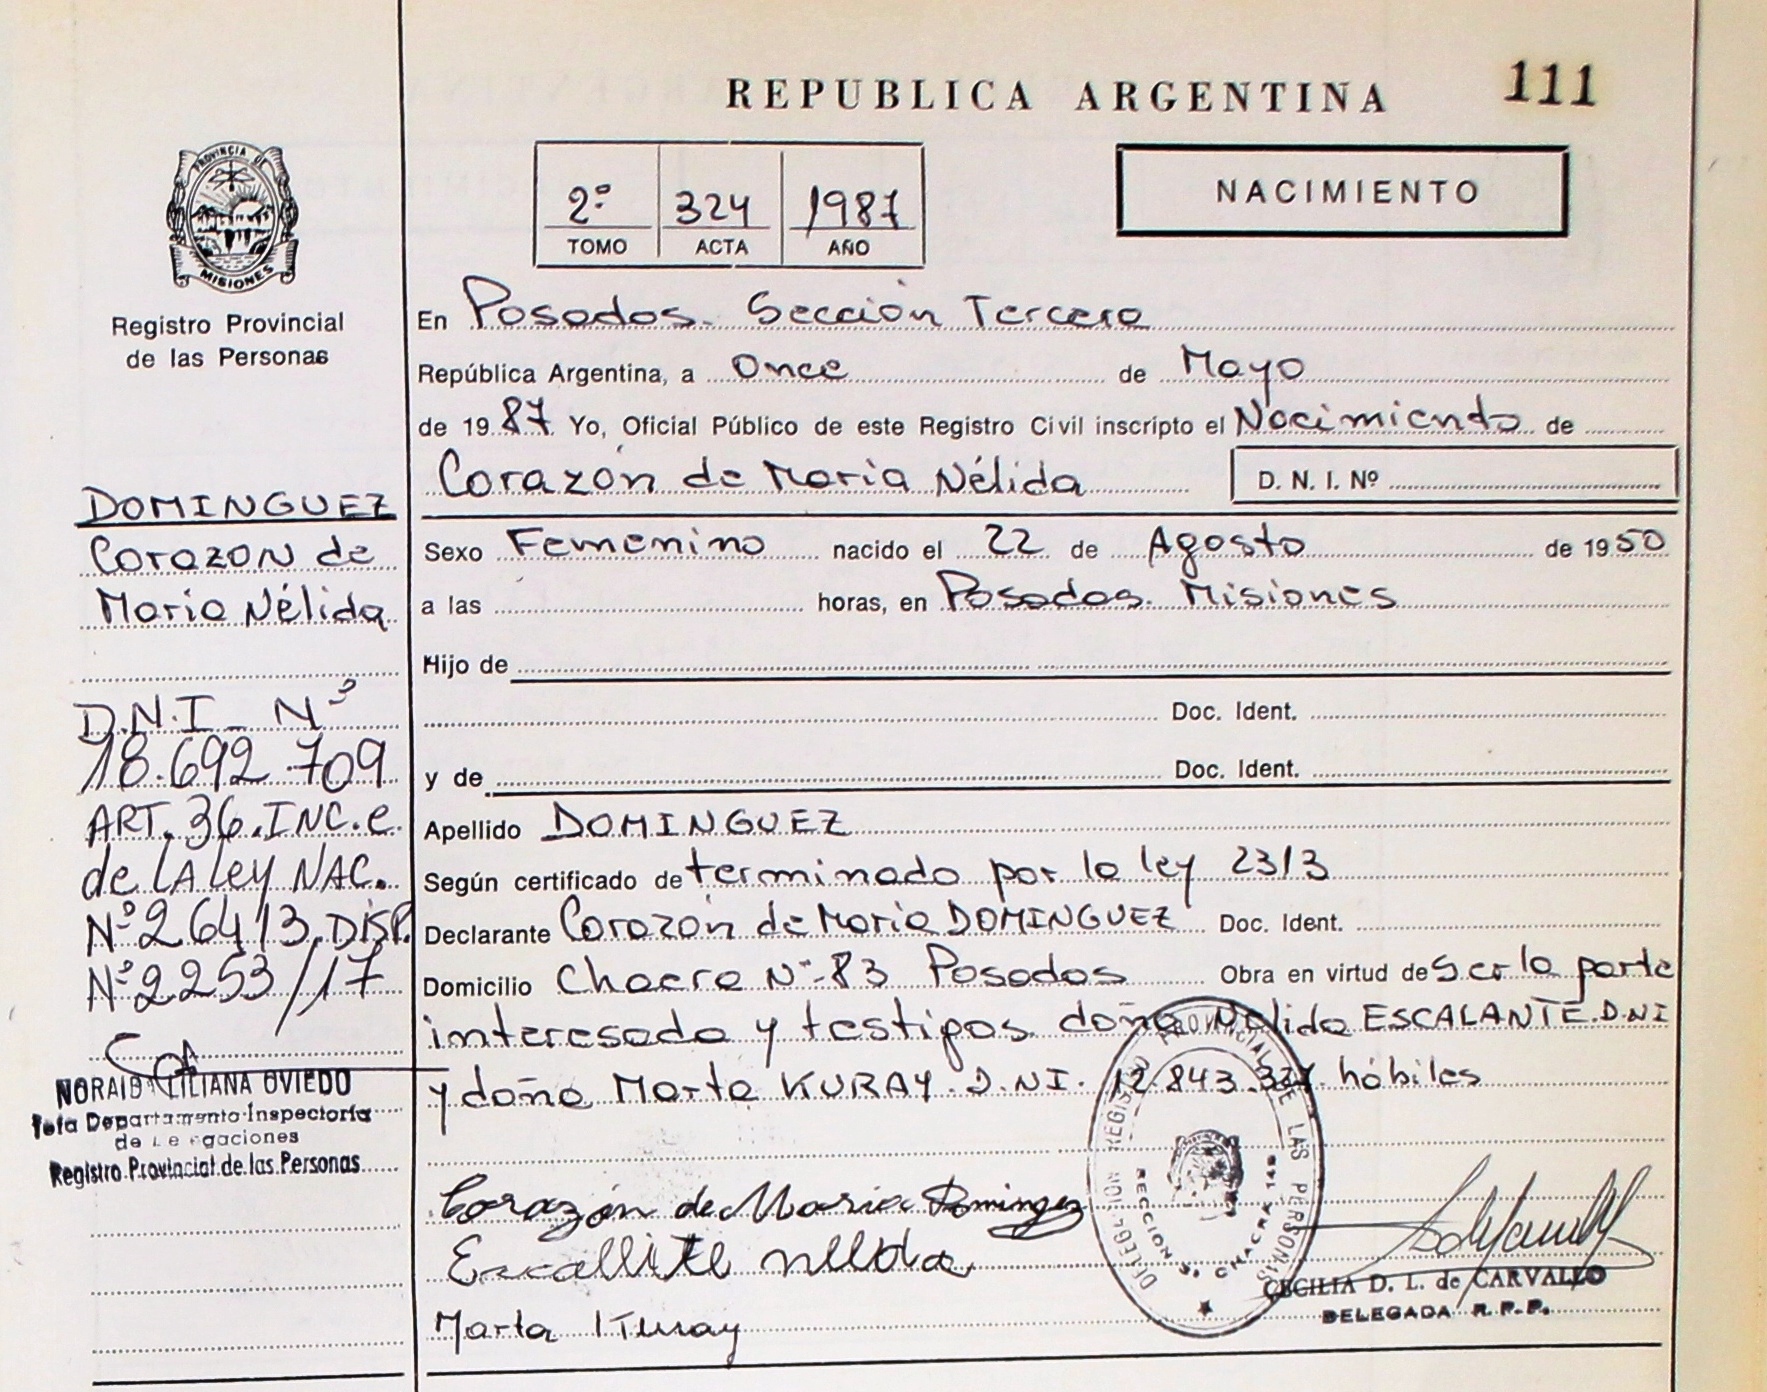 REPUBLICA ARGENTINA
111
PROVINCIA DE
MISIONES
Registro Provincial
de las Personas
2º 324 1987
TOMO ACTA AÑO
NACIMIENTO
En Posadas. Sección Tercera
República Argentina, a Once de Mayo
de 1987 Yo, Oficial Público de este Registro Civil inscripto el Nacimiento de
Corazón de Maria Nélida D. N. I. Nº
Sexo Femenino nacido el 22 de Agosto de 1950
a las horas, en Posadas. Misiones
Hijo de
Doc. Ident.
y de Doc. Ident.
Apellido DOMINGUEZ
Según certificado de terminado por la ley 2313
Declarante Corazón de Maria DOMINGUEZ Doc. Ident.
Domicilio Chacra Nº 83 Posadas Obra en virtud de ser la parte
interesada y testigos doña Nelida ESCALANTE D.NI
y doña Marta KURAY. D.NI. 12.843. hábiles
Corazón de Maria Domingez
nelida
Marta Kuray
DOMINGUEZ
Corazon de
Maria Nélida
D.N.I. Nº
18.692.709
ART. 36. INC. e
de LA Ley NAC.
Nº 26413. DISP.
Nº 2253/17
NORAID LILIANA OVIEDO
Jefa Departamento Inspectoría
de Delegaciones
Registro Provincial de las Personas
DELEGACION REGISTRO PROVINCIAL DE LAS PERSONAS
SECCION 3. CHACRA 148
CECILIA D. L. de CARVALLO
DELEGADA R. P. P.